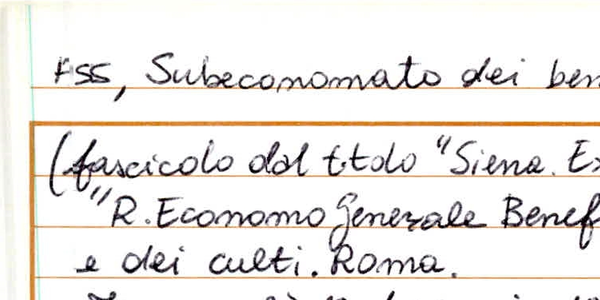 FSS, Subeconomato dei ben
(fascicolo dal titolo "Siena. Ex
"R. Economo Generale Benef
e dei culti. Roma.